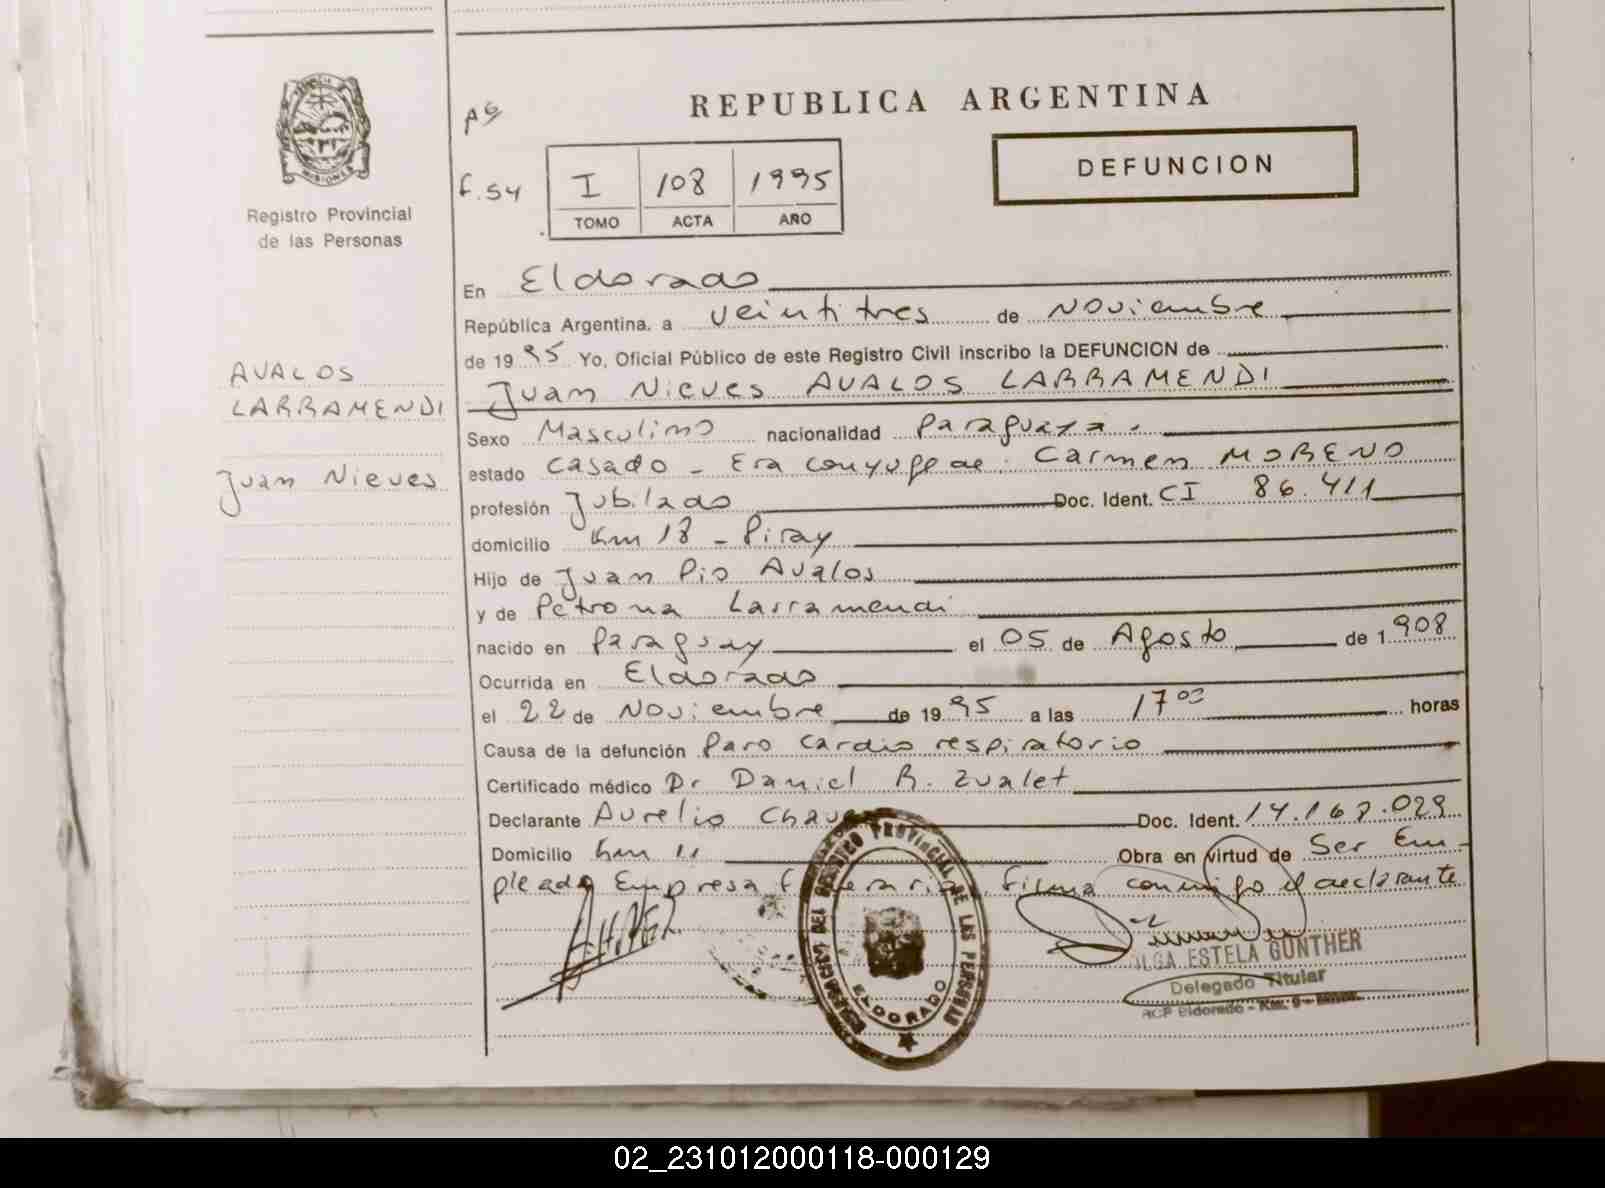 MISIONES
Registro Provincial
de las Personas
AVALOS
LARRAMENDI
Juan Nieves
REPUBLICA ARGENTINA
F. 54
I 108 1995
TOMO ACTA AÑO
DEFUNCION
En Eldorado
República Argentina, a veintitres de Noviembre
de 1995 Yo, Oficial Público de este Registro Civil inscribo la DEFUNCION de
Juan Nieves AVALOS LARRAMENDI
Sexo Masculino nacionalidad Paraguaya.
estado Casado - Era conyuge de: Carmen MORENO
profesión Jubilado Doc. Ident. CI 86.411
domicilio Km 18 - Piray
Hijo de Juan Pio Avalos
y de Petrona Larramendi
nacido en Paraguay el 05 de Agosto de 1908
Ocurrida en Eldorado
el 22 de Noviembre de 1995 a las 17 00 horas
Causa de la defunción Paro Cardio respiratorio
Certificado médico Dr Daniel R. Zualet
Declarante Aurelio Doc. Ident.
Domicilio Km 11 Obra en virtud de Ser Em-
pleado Empresa Funeraria. Firma conmigo el declarante
REGISTRO PROVINCIAL DE LAS PERSONAS
ELDORADO
OLGA ESTELA GUNTHER
Delegado Titular
RCP Eldorado - Km. 9 -
02_231012000118-000129